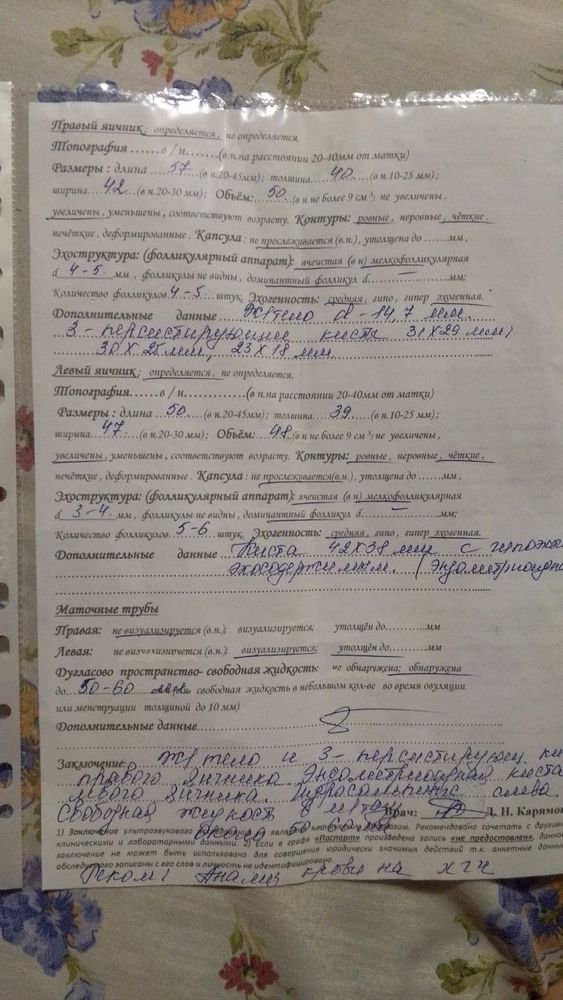 Правый яичник: определяется, не определяется.
Топография......в / н.......(в н.на расстоянии 20-40мм от матки)
Размеры : длина ....57....(в н.20-45мм); толщина....40....(в н.10-25 мм);
ширина....42....(в н.20-30 мм); Объём:..50..(в н не более 9 см³); не увеличены,
увеличены, уменьшены, соответствуют возрасту. Контуры: ровные, неровные, чёткие,
нечёткие, деформированные. Капсула : не прослеживается (в н.), утолщена до ......мм,
Эхоструктура: (фолликулярный аппарат): ячеистая (в н) мелкофолликулярная
d 4-5 мм, фолликулы не видны, доминантный фолликул d......—......мм;
Количество фолликулов 4-5 штук. Эхогенность: средняя, гипо, гипер эхогенная.
Дополнительные данные Ж/тело d - 14,7 мм.
3 - персистирующие кисты 31х29 мм,
30 х 25 мм, 23 х 18 мм
Левый яичник: определяется, не определяется.
Топография......в / н............(в н.на расстоянии 20-40мм от матки)
Размеры : длина....50....(в н.20-45мм); толщина....39....(в н.10-25 мм);
ширина....47....(в н.20-30 мм); Объём:..48..(в н не более 9 см³); не увеличены,
увеличены, уменьшены, соответствуют возрасту. Контуры: ровные, неровные, чёткие,
нечёткие, деформированные. Капсула : не прослеживается(в н.), утолщена до ......мм,
Эхоструктура: (фолликулярный аппарат): ячеистая (в н) мелкофолликулярная
d 3-4 мм, фолликулы не видны, доминантный фолликул d......—......мм;
Количество фолликулов 5-6 штук. Эхогенность: средняя, гипо, гипер эхогенная.
Дополнительные данные Киста 42х38 мм с
эхосодержимым. (эндометриоидн
Маточные трубы
Правая: не визуализируется (в н.); визуализируется; утолщён до..........мм
Левая: не визуализируется (в н.); визуализируется; утолщён до..........мм
Дугласово пространство- свободная жидкость: не обнаружена; обнаружена
до...50-60 мм свободная жидкость в небольшом кол-ве во время овуляции
или менструации толщиной до 10 мм)
Дополнительные данные
Заключение: ж/тело и 3 - персистирующ. ки
правого яичника. Эндометриоидная киста
левого яичника. Гидросальпинкс слева.
Свободная жидкость в Врач: Д. Н. Каримов
50-60 мм
1) Заключение ультразвукового не является клин Рекомендовано сочетать с другими
клиническими и лабораторными данными. 2) Если в графе «Паспорт» произведена запись «не предоставлен» данное
заключение не может быть использовано для совершения юридически значимых действий т.к. анкетные данные
обследуемого записаны с его слов и личность не идентифицировано.
Реком: Анализ крови на ХГЧ